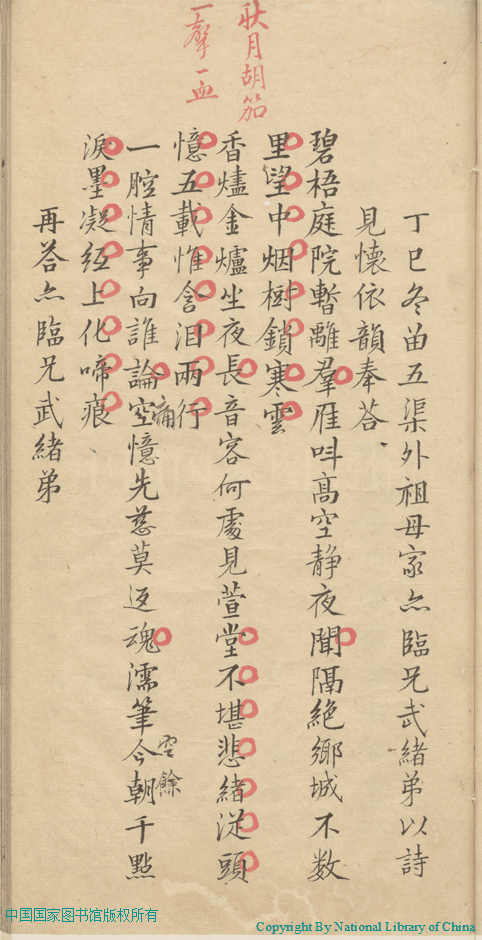 秋月胡笳
一聲一血
丁巳冬留五渠外祖母家亦臨兄武緒弟以詩
見懷依韻奉荅
碧梧庭院暫離羣雁呌高空静夜聞隔絶鄉城不数
里望中烟樹鎖寒雲
香燼金爐坐夜長音容何處見萱堂不堪悲緒從頭
憶五載惟含泪兩行
一腔情事向誰論空憶先慈莫返魂濡筆今朝千點
痛
空餘
淚墨凝紙上化啼痕
再荅亦臨兄武緒弟
中国国家图书馆版权所有
Copyright By National Library of China